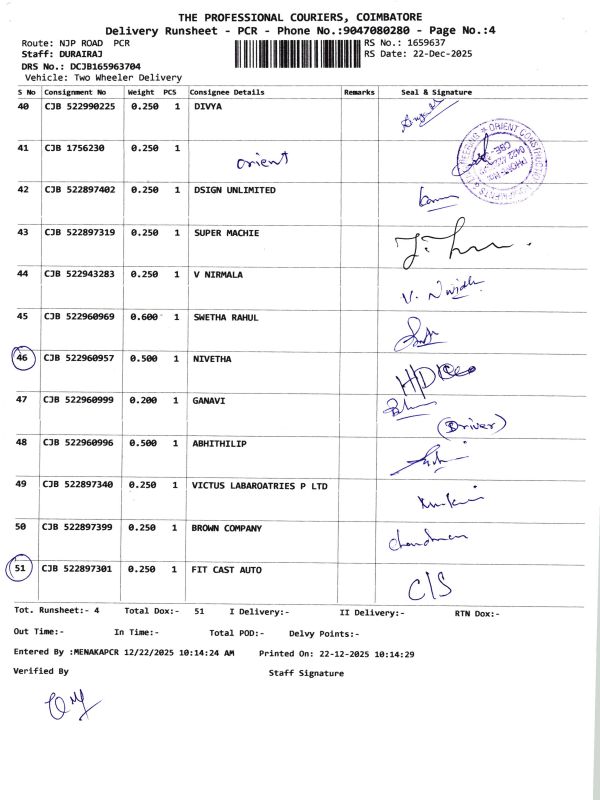 THE PROFESSIONAL COURIERS, COIMBATORE
Delivery Runsheet - PCR - Phone No.:9047080280 - Page No.:4
Route: NJP ROAD PCR RS No.: 1659637
Staff: DURAIRAJ RS Date: 22-Dec-2025
DRS No.: DCJB165963704
Vehicle: Two Wheeler Delivery
S No Consignment No Weight PCS Consignee Details Remarks Seal & Signature
40 CJB 522990225 0.250 1 DIVYA
41 CJB 1756230 0.250 1 orient
42 CJB 522897402 0.250 1 DSIGN UNLIMITED
43 CJB 522897319 0.250 1 SUPER MACHIE
44 CJB 522943283 0.250 1 V NIRMALA
45 CJB 522960969 0.600 1 SWETHA RAHUL
46 CJB 522960957 0.500 1 NIVETHA
47 CJB 522960999 0.200 1 GANAVI
(Driver)
48 CJB 522960996 0.500 1 ABHITHILIP
49 CJB 522897340 0.250 1 VICTUS LABAROATRIES P LTD
50 CJB 522897399 0.250 1 BROWN COMPANY
51 CJB 522897301 0.250 1 FIT CAST AUTO C/S
Tot. Runsheet:- 4 Total Dox:- 51 I Delivery:- II Delivery:- RTN Dox:-
Out Time:- In Time:- Total POD:- Delvy Points:-
Entered By :MENAKAPCR 12/22/2025 10:14:24 AM Printed On: 22-12-2025 10:14:29
Verified By Staff Signature